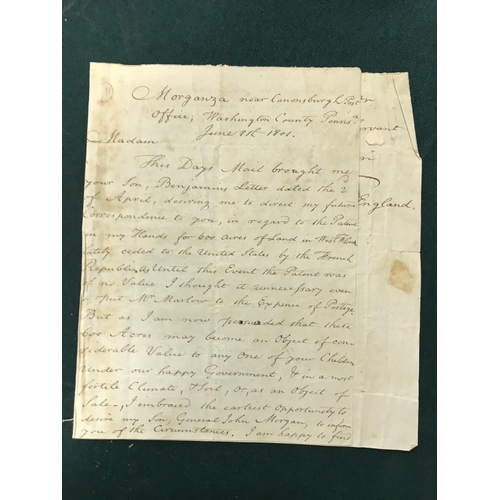 Morganza near Canonsburgh Post
Office; Washington County Penns.a
June 8th 1801.
Madam
This Days Mail brought me
your Son, Benjamins Letter dated the 2
of April, desiring me to direct my future
Correspondence to you, in regard to the Patent
in my Hands for 600 Acres of Land in West
lately ceded to the United States by the French
Republic. As Until this Event the Patent was
of no Value I thought it unnecessary even
to put Mrs. Marlow to the Expence of Postage
But as I am now persuaded that these
600 Acres may become an Object of con-
siderable Value to any One of your Children
Under our happy Government, & in a most
fertile Climate, & Soil, or, as an Object of
Sale, I embraced the earliest Opportunity to
desire my Son, General John Morgan, to inform
you of the Circumstances. I am happy to find
ervant
England.